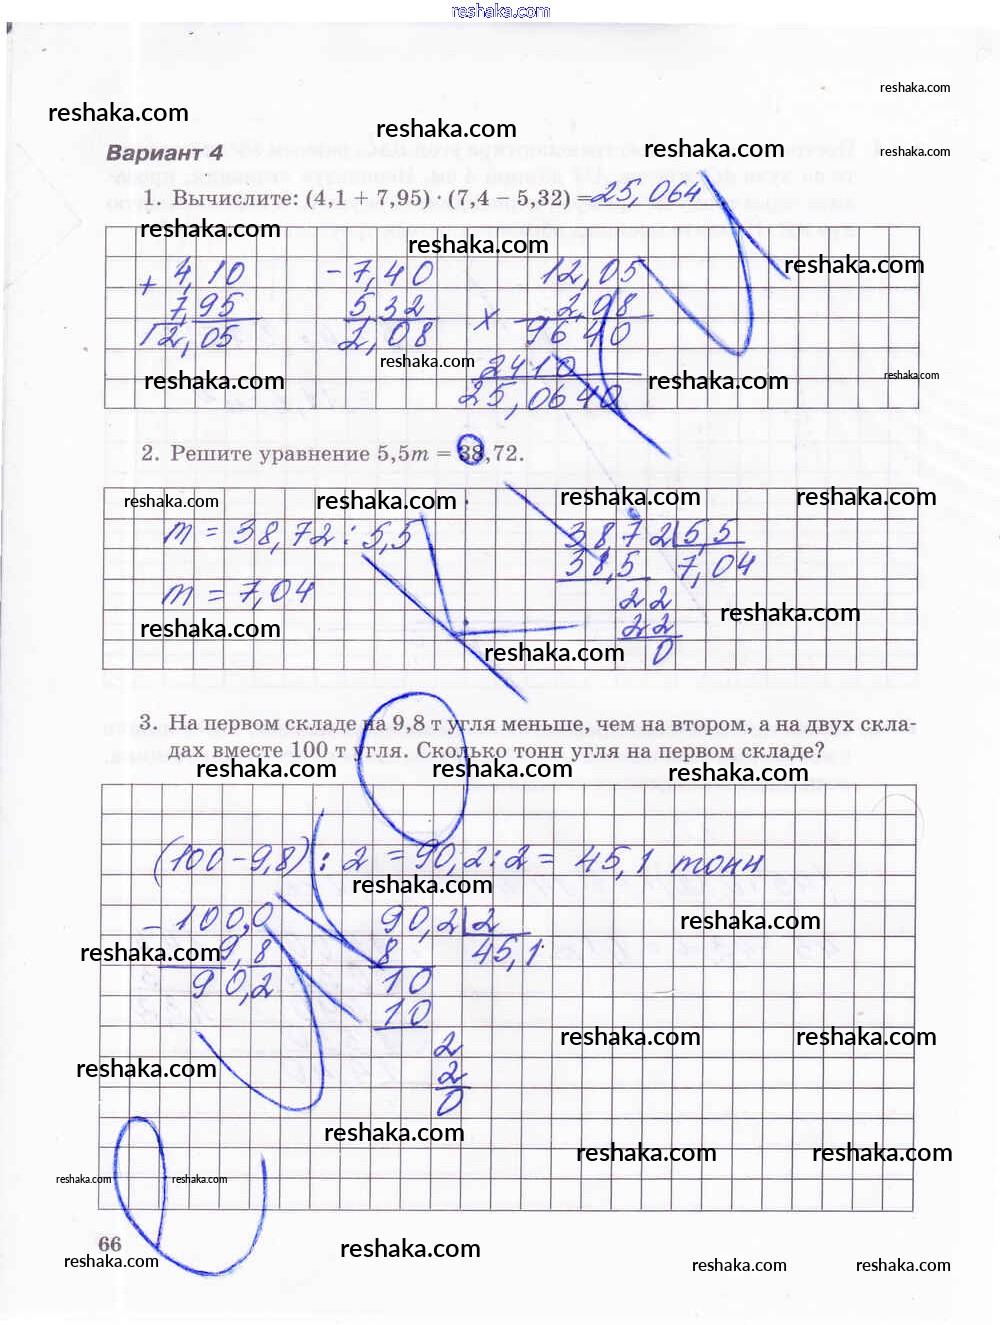 reshaka.com
reshaka.com
reshaka.com
reshaka.com
reshaka.com
Вариант 4
1. Вычислите: (4,1 + 7,95) · (7,4 − 5,32) = 25,064
reshaka.com
reshaka.com
reshaka.com
+ 4,10 − 7,40 12,05
7,95 5,32 x 2,08
12,05 2,08 9640
reshaka.com
2410
reshaka.com
reshaka.com
reshaka.com
25,0640
2. Решите уравнение 5,5m = 38,72.
reshaka.com
reshaka.com
reshaka.com
reshaka.com
m = 38,72 : 5,5 38,72 5,5
38,5 7,04
m = 7,04 22
reshaka.com
reshaka.com
22
reshaka.com
0
3. На первом складе на 9,8 т угля меньше, чем на втором, а на двух скла-
дах вместе 100 т угля. Сколько тонн угля на первом складе?
reshaka.com
reshaka.com
reshaka.com
(100 − 9,8) : 2 = 90,2 : 2 = 45,1 тонн
reshaka.com
− 100,0 90,2 2
reshaka.com
9,8 8 45,1
reshaka.com
90,2 10
10
reshaka.com
reshaka.com
2
reshaka.com
2
0
reshaka.com
reshaka.com
reshaka.com
reshaka.com
reshaka.com
66
reshaka.com
reshaka.com
reshaka.com
reshaka.com